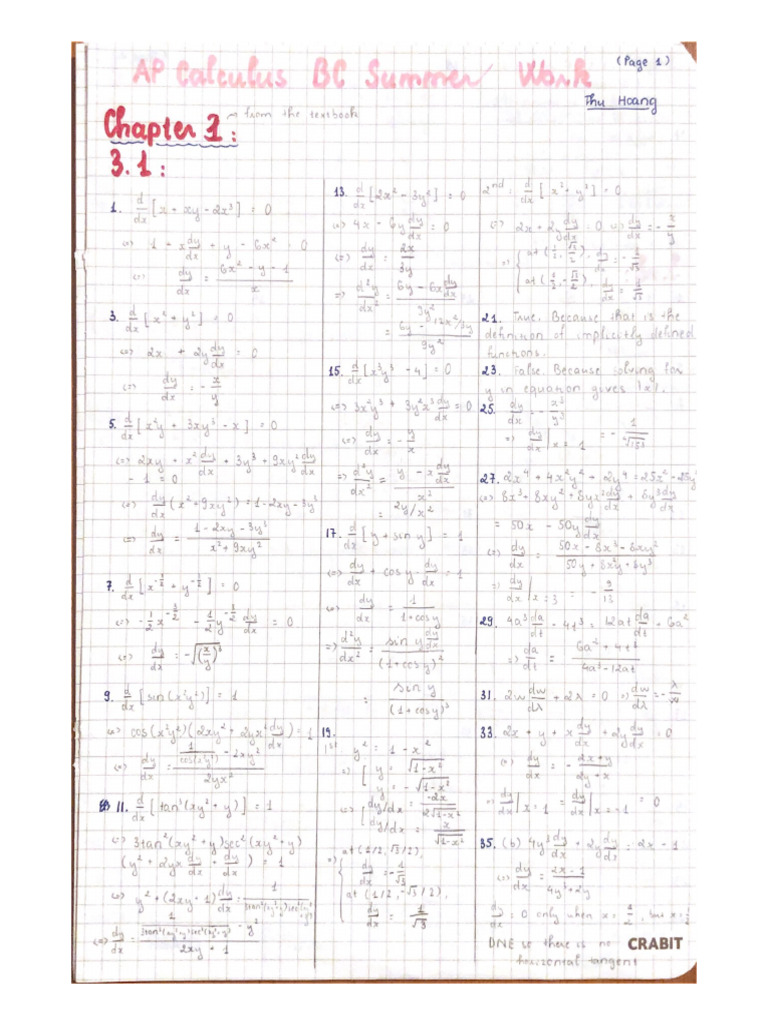 AP Calculus BC Summer Work
(Page 1)
Thu Hoang
Chapter 3:
→ from the textbook
3.1:
1. d/dx [x + xy - 2x³] = 0
=> 1 + x dy/dx + y - 6x² = 0
<=> dy/dx = (6x² - y - 1)/x
3. d/dx [x² + y²] = 0
<=> 2x + 2y dy/dx = 0
<=> dy/dx = - x/y
5. d/dx [x²y + 3xy³ - x] = 0
<=> 2xy + x² dy/dx + 3y³ + 9xy² dy/dx
- 1 = 0
<=> dy/dx (x² + 9xy²) = 1 - 2xy - 3y³
<=> dy/dx = (1 - 2xy - 3y³)/(x² + 9xy²)
7. d/dx [x^(-1/2) + y^(-1/2)] = 0
<=> -1/2 x^(-3/2) - 1/2 y^(-3/2) dy/dx = 0
<=> dy/dx = -√(x/y)³
9. d/dx [sin(x²y²)] = 1
<=> cos(x²y²)(2xy² + 2yx² dy/dx) = 1
<=> dy/dx = (1/cos(x²y²) - 2xy²)/(2yx²)
11. d/dx [tan³(xy² + y)] = 1
<=> 3tan²(xy² + y)sec²(xy² + y)
(y² + 2yx dy/dx + dy/dx) = 1
<=> y² + (2xy + 1) dy/dx = 1/(3tan²(xy²+y)sec²(xy²+y))
<=> dy/dx = (1/(3tan²(xy²+y)sec²(xy²+y)) - y²)/(2xy + 1)
13. d/dx [2x² - 3y²] = 0
=> 4x - 6y dy/dx = 0
<=> dy/dx = 2x/3y
=> d²y/dx² = (6y - 6x dy/dx)/9y²
= (6y - 12x²/3y)/9y²
15. d/dx [x³y³ - 4] = 0
<=> 3x²y³ + 3y²x³ dy/dx = 0
<=> dy/dx = - y/x
=> d²y/dx² = (y - x dy/dx)/x²
= 2y/x²
17. d/dx [y + sin y] = 1
<=> dy/dx + cos y · dy/dx = 1
<=> dy/dx = 1/(1 + cos y)
=> d²y/dx² = (sin y dy/dx)/(1 + cos y)²
= sin y/(1 + cos y)³
19.
1st y² = 1 - x²
=> [ y = √(1-x²)
y = -√(1-x²)
=> [ dy/dx = -2x/(2√(1-x²))
dy/dx = x/√(1-x²)
=> { at (1/2, √3/2),
dy/dx = - 1/√3
at (1/2, -√3/2),
dy/dx = 1/√3
2nd: d/dx [x² + y²] = 0
<=> 2x + 2y dy/dx = 0 <=> dy/dx = - x/y
=> { at (1/2, √3/2), dy/dx = - 1/√3
at (1/2, -√3/2), dy/dx = 1/√3
21. True. Because that is the
definition of implicitly defined
functions.
23. False. Because solving for
y in equation gives |x|.
25. dy/dx = - x³/y³
=> dy/dx | x = 1 = -
27. 2x⁴ + 4x²y² + 2y⁴ = 25x² - 25y²
<=> 8x³ + 8xy² + 8yx² dy/dx + 8y³ dy/dx
= 50x - 50y dy/dx
<=> dy/dx = (50x - 8x³ - 8xy²)/(50y + 8xy + 8y³)
=> dy/dx | x = 3 = - 9/13
29. 4a³ da/dt - 4t³ = 12at da/dt + 6a²
=> da/dt = (6a² + 4t³)/(4a³ - 12at)
31. 2w dw/dλ + 2λ = 0 => dw/dλ = - λ/w
33. 2x + y + x dy/dx + 2y dy/dx = 0
<=> dy/dx = - (2x + y)/(2y + x)
=> dy/dx | x = 1 = dy/dx | x = -1 = 0
35. (b) 4y³ dy/dx + 2y dy/dx = 2x - 1
<=> dy/dx = (2x - 1)/(4y³ + 2y)
dy/dx = 0 only when x = 1/2, but x = 1/2
DNE so there is no
horizontal tangent
CRABIT